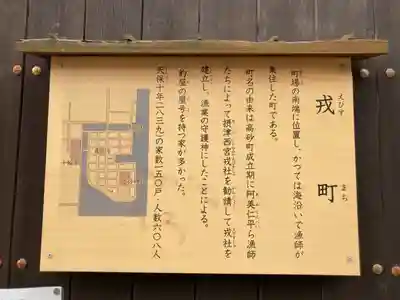 戎町
えびす
まち
町場の南端に位置し、かつては海沿いで漁師が
集住した町である。
町名の由来は高砂町成立期に阿美仁平ら漁師
たちによって摂津西宮戎社を勧請して戎社を
建立し、漁業の守護神にしたことによる。
釣屋の屋号を持つ家が多かった。
天保十年(一八三九)の家数一五〇戸・人数六〇八人